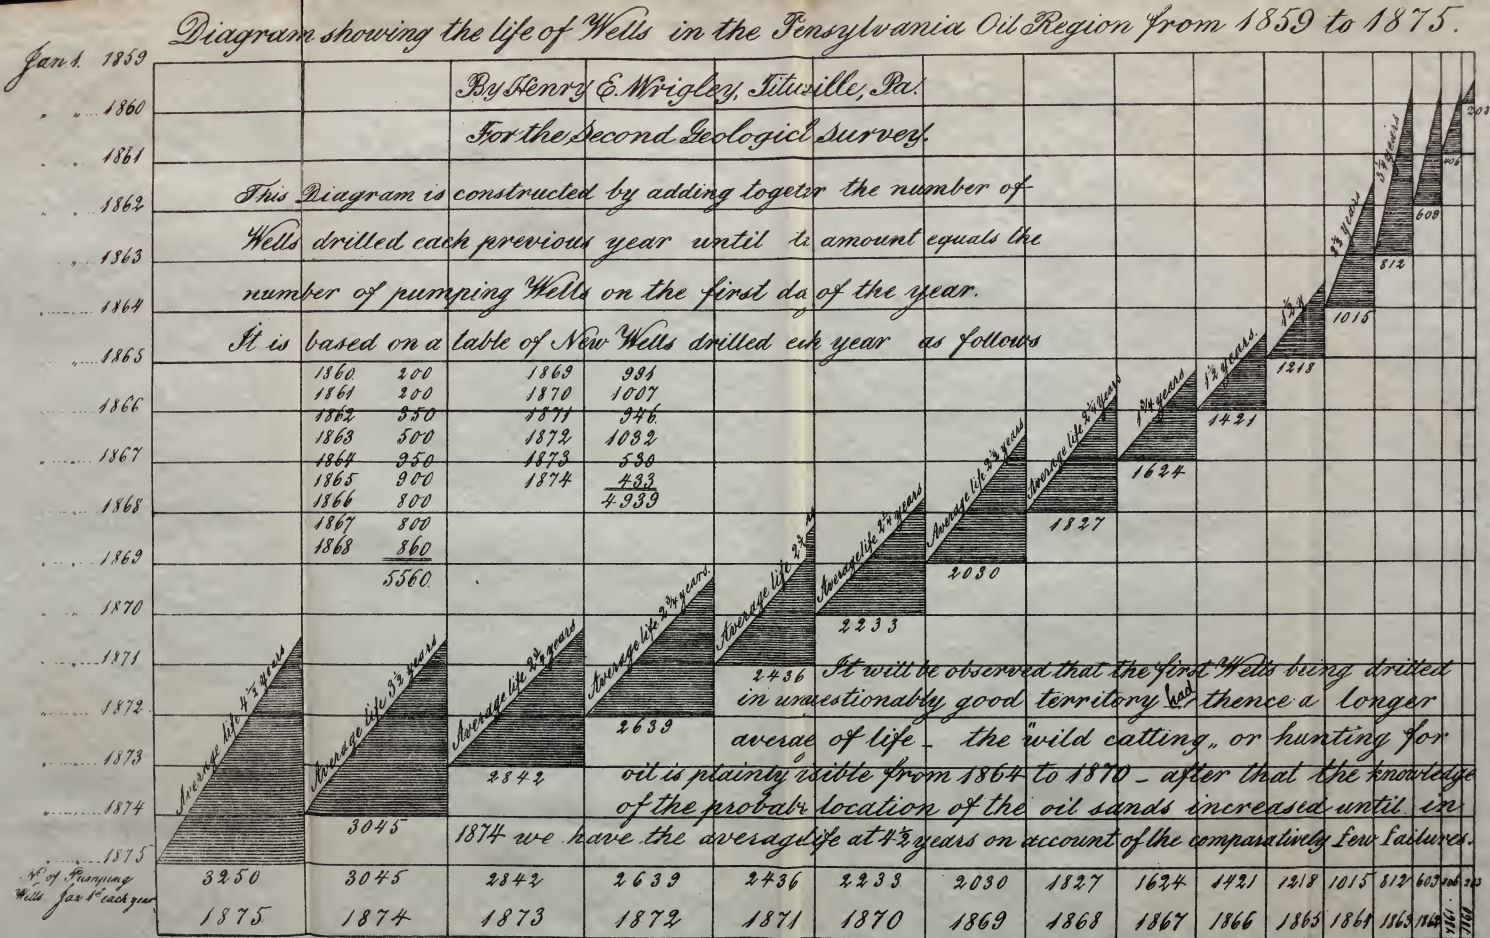 Diagram showing the life of Wells in the Pensylvania Oil Region from 1859 to 1875.
Jan 1. 1859
By Henry E. Wrigley, Titusville, Pa.
" " 1860
For the Second Geologicl Survey.
" " 1861
This Diagram is constructed by adding togetr the number of
" " 1862
Wells drilled each previous year until t amount equals the
" " 1863
number of pumping Wells on the first da of the year.
" " 1864
It is based on a table of New Wells drilled ech year as follows
" " 1865
1860 200 1869 991
1861 200 1870 1007
1862 350 1871 946
1863 500 1872 1032
1864 950 1873 530
1865 900 1874 433
1866 800 4939
1867 800
1868 860
5560
" " 1866
" " 1867
" " 1868
" " 1869
" " 1870
" " 1871
" " 1872
" " 1873
" " 1874
" " 1875
Average life 4 1/2 years
Average life 3 1/2 years
Average life 2 3/4 years
Average life 2 3/4 years
Average life
Average life 2 1/4 years
Average life 2 1/2 years
Average life 2 1/4 years
1 3/4 years
1 1/2 years
1 1/2 y
years
years
3045
2842
2639
2436
2233
2030
1827
1624
1421
1218
1015
812
609
406
203
It will be observed that the first Wells being drilled
in unuestionably good territory had thence a longer
averae of life - the "wild catting" or hunting for
oil is plainly isible from 1864 to 1870 - after that the knowledge
of the probab location of the oil sands increased until in
1874 we have the average life at 4 1/2 years on account of the comparatively few failures.
No of Pumping
Wells Jan 1st each year
3250 3045 2842 2639 2436 2233 2030 1827 1624 1421 1218 1015 812 609 406 203
1875 1874 1873 1872 1871 1870 1869 1868 1867 1866 1865 1864 1863 1862 1861 1860